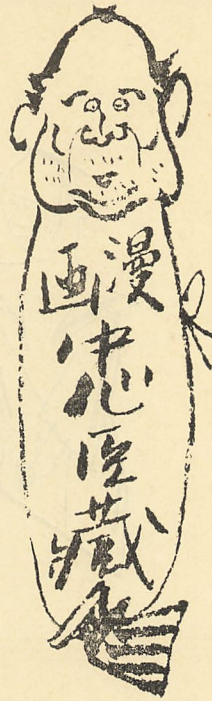 漫画
忠臣藏